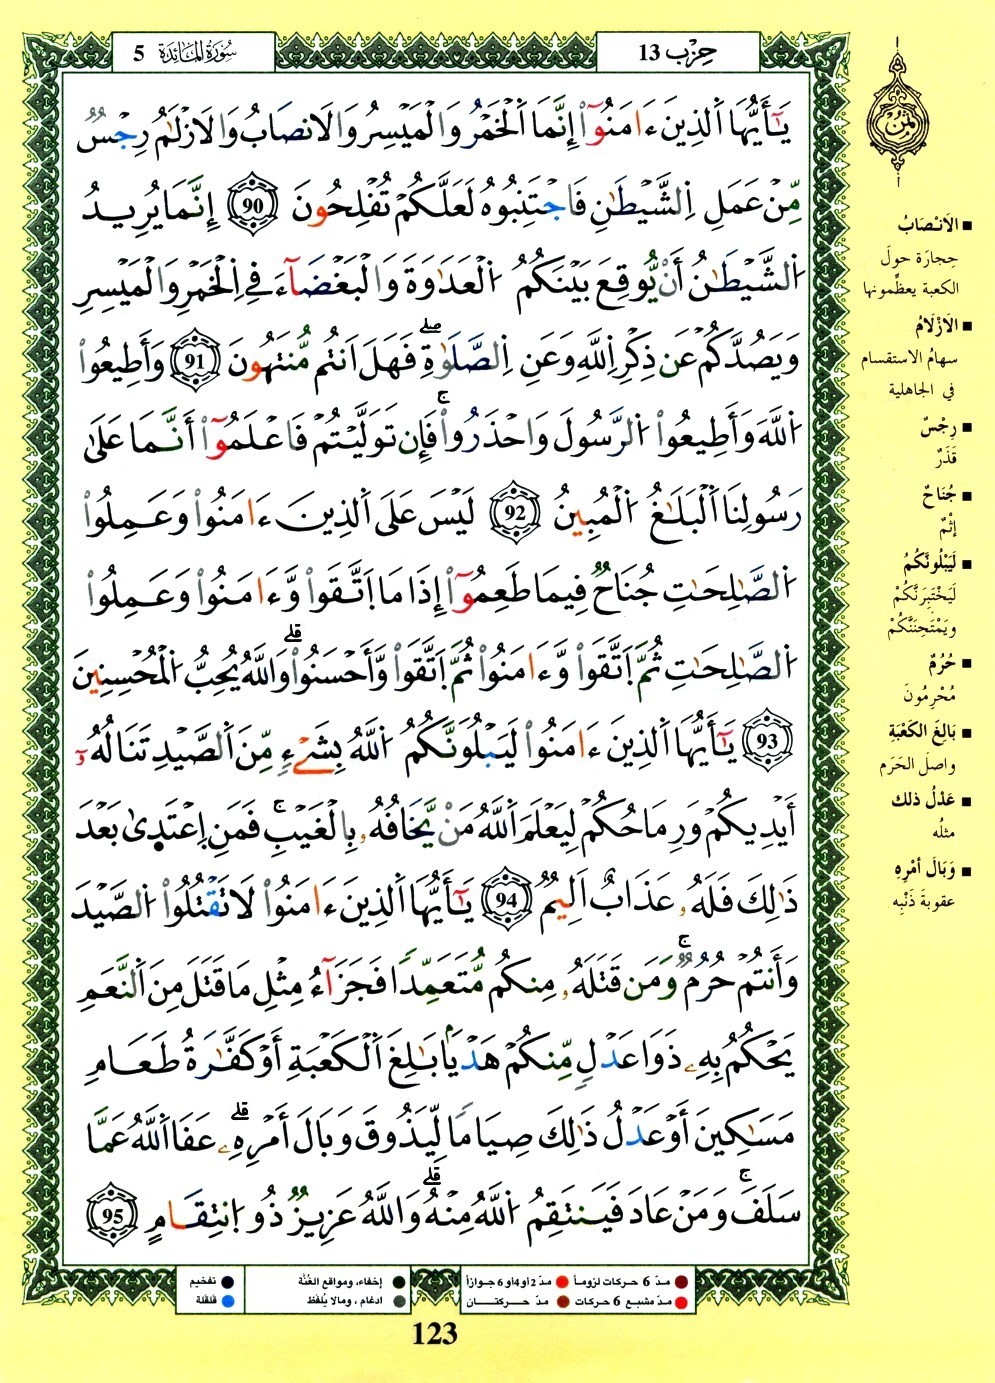 سُورَةُ المَائِدَة 5
حِزْب 13
ثُمُن
يَٰٓأَيُّهَا اَ۬لذِينَ ءَامَنُوٓاْ إِنَّمَا اَ۬لْخَمْرُ وَالْمَيْسِرُ وَالَانصَابُ وَالَازْلَٰمُ رِجْسٞ
مِّنْ عَمَلِ اِ۬لشَّيْطَٰنِ فَاجْتَنِبُوهُ لَعَلَّكُمْ تُفْلِحُونَ 90 إِنَّمَا يُرِيدُ
اُ۬لشَّيْطَٰنُ أَنْ يُّوقِعَ بَيْنَكُمُ اُ۬لْعَدَٰوَةَ وَالْبَغْضَآءَ فِے اِ۬لْخَمْرِ وَالْمَيْسِرِ
وَيَصُدَّكُمْ عَن ذِكْرِ اِ۬للَّهِ وَعَنِ اِ۬لصَّلَوٰةِۖ فَهَلَ اَنتُم مُّنتَهُونَ 91 وَأَطِيعُواْ
اُ۬للَّهَ وَأَطِيعُواْ اُ۬لرَّسُولَ وَاحْذَرُواْۚ فَإِن تَوَلَّيْتُمْ فَاعْلَمُوٓاْ أَنَّمَا عَلَىٰ
رَسُولِنَا اَ۬لْبَلَٰغُ اُ۬لْمُبِينُ 92 لَيْسَ عَلَى اَ۬لذِينَ ءَامَنُواْ وَعَمِلُواْ
اُ۬لصَّٰلِحَٰتِ جُنَاحٞ فِيمَا طَعِمُوٓاْ إِذَا مَا اَ۪تَّقَواْ وَّءَامَنُواْ وَعَمِلُواْ
اُ۬لصَّٰلِحَٰتِ ثُمَّ اَ۪تَّقَواْ وَّءَامَنُواْ ثُمَّ اَ۪تَّقَواْ وَّأَحْسَنُواْۗ وَاللَّهُ يُحِبُّ اُ۬لْمُحْسِنِينَ
93 يَٰٓأَيُّهَا اَ۬لذِينَ ءَامَنُواْ لَيَبْلُوَنَّكُمُ اُ۬للَّهُ بِشَےْءٖ مِّنَ اَ۬لصَّيْدِ تَنَالُهُۥٓ
أَيْدِيكُمْ وَرِمَاحُكُمْ لِيَعْلَمَ اَ۬للَّهُ مَنْ يَّخَافُهُۥ بِالْغَيْبِۚ فَمَنِ اِ۪عْتَدَىٰ بَعْدَ
ذَٰلِكَ فَلَهُۥ عَذَابٌ اَلِيمٞ 94 يَٰٓأَيُّهَا اَ۬لذِينَ ءَامَنُواْ لَا تَقْتُلُواْ اُ۬لصَّيْدَ
وَأَنتُمْ حُرُمٞۚ وَمَن قَتَلَهُۥ مِنكُم مُّتَعَمِّداٗ فَجَزَآءُ مِثْلِ مَا قَتَلَ مِنَ اَ۬لنَّعَمِ
يَحْكُمُ بِهِۦ ذَوَا عَدْلٖ مِّنكُمْ هَدْياَۢ بَٰلِغَ اَ۬لْكَعْبَةِ أَوْ كَفَّٰرَةُ طَعَامِ
مَسَٰكِينَ أَوْ عَدْلُ ذَٰلِكَ صِيَاماٗ لِّيَذُوقَ وَبَالَ أَمْرِهِۦۗ عَفَا اَ۬للَّهُ عَمَّا
سَلَفَۚ وَمَنْ عَادَ فَيَنتَقِمُ اُ۬للَّهُ مِنْهُۗ وَاللَّهُ عَزِيزٞ ذُو اُ۪نتِقَامٍ 95
■ الاَنْصَابُ
حِجارَة حولَ
الكعبة يعظِّمونها
■ الاَزْلاَمُ
سهامُ الاستقسام
في الجاهلية
■ رِجْسٌ
قَذَرٌ
■ جُنَاحٌ
إثْمٌ
■ لَيَبْلُوَنَّكُمُ
لَيَخْتَبِرَنَّكُمْ
ويَمْتَحِنَنَّكُمْ
■ حُرُمٌ
مُحْرِمُونَ
■ بَالِغَ الكَعْبَةِ
واصل الحَرَم
■ عَدْلُ ذلك
مثلُه
■ وَبَالَ أمْرِهِ
عقوبةَ ذَنْبِه
مدّ 6 حركات لزوماً مدّ 2 أو 4 أو 6 جوازاً
مدّ مشبع 6 حركات مدّ حركتان
إخفاء، ومواقع الغُنَّة
ادغام، ومالا يُلفَظ
تفخيم
قلقلة
123